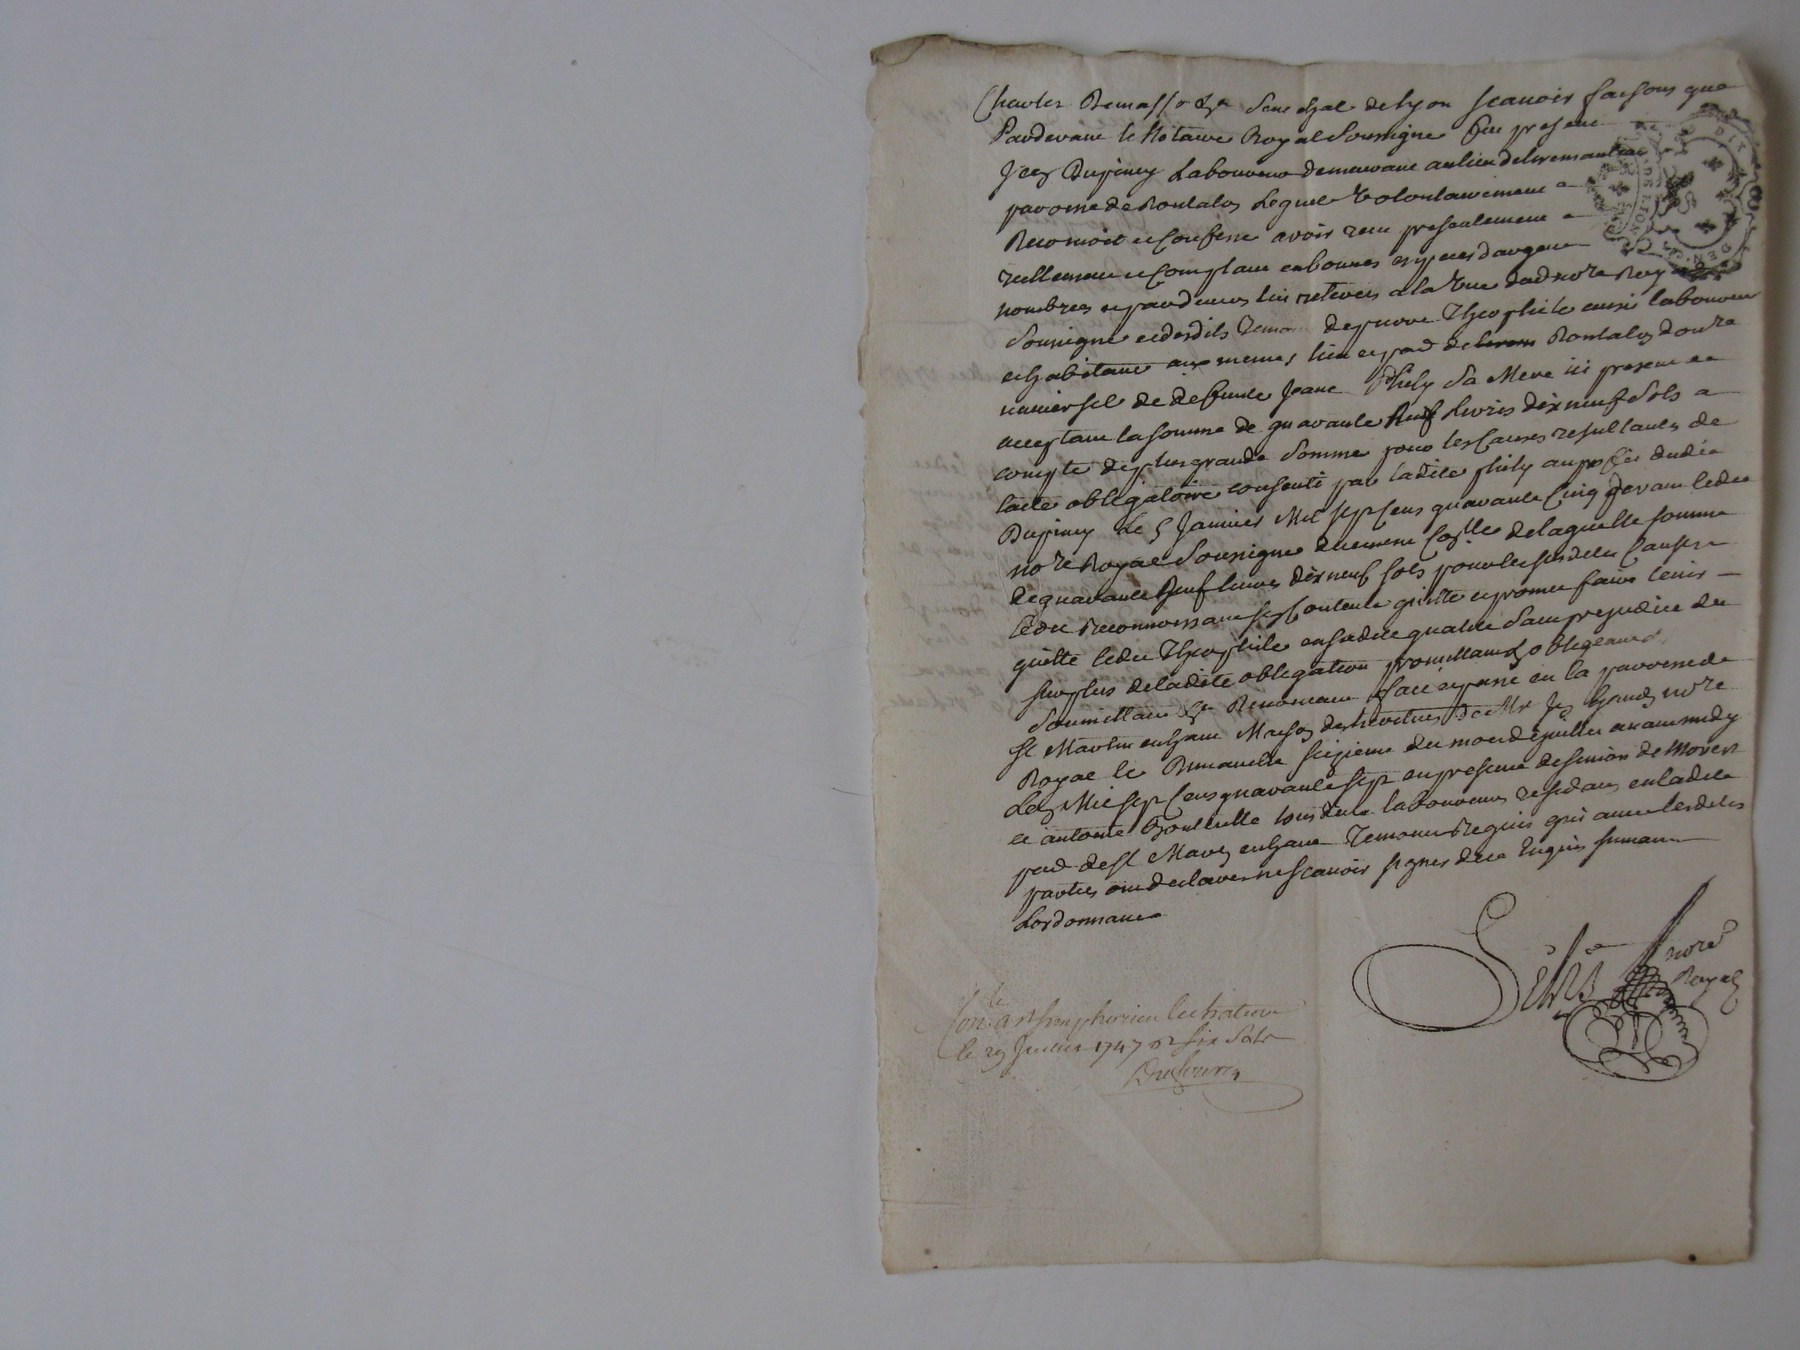 Charles Demasso &a Senechal de Lyon scavoir faisons que
Pardevant le Notaire Royal Soussigné fut present
Jean Dupiney Laboureur demeurant au lieu de
paroisse de Rontalon Lequel Volontairement a
Reconnoit et Confesse avoir receu presentement
reellement et Comptant en bonnes especes d'argent
nombrees et par devers lui retirees a la Vue dud nore Royal
Soussigné et desdits Temoins de pierre Theophile aussi laboureur
et habitant aux memes lieu et par de Rontalon donre
universel de defunte Jeane Phily Sa Mere ici present et
acceptant la somme de quarante Neuf Livres dix neuf Sols a
compte de plus grande Somme pour les Causes resultantes de
lacte obligatoire consenti par ladite phily au proffit dudit
Dupiney le 5 Janvier Mil sept Cens quarante Cinq pervant ledit
nore Royal Soussigné duement Collé de laquelle somme
de quarante Neuf livres dix neuf sols pour les susdites Causes
ledit Reconnoissant sest Contenté quitte et promet faire tenir
quitte ledit Theophile en sadite qualité Sans prejudice du
surplus de ladite obligation promettant &a obligeant &a
Soumettant &a Renoncant fait et passé en la paroisse de
St Martin en haut Maison des heritiers de Me nore
Royal le Dimanche seizieme du mois de juillet avant midy
Lan Mil sept Cens quarante sept en presence de simon de Moiere
et antoine Bouteille tous deux laboureurs residans en ladite
par de St Martin en haut Temoins Requis qui avec lesdites
parties ont declarer ne scavoir signer de ce Enquis suivant
Lordonnance
nore
Royal
Conle a st simphorien le chateau
le 29 Juillet 1747 R six Sols